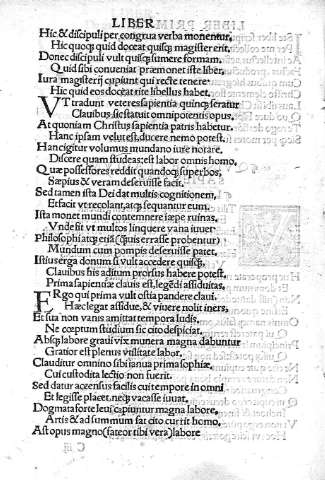 LIBER
Hic & discipuli per congrua verba monentur,
Hic quoq; quid doceat quisq; magister erit,
Donec discipuli vult quisq; sumere formam,
Quid sibi conueniat præmonet iste liber,
Iura magisterij capiunt qui recte tenere
Hic quid eos doceat rite libellus habet.
VT tradunt veteres sapientia quinq; seratur
Clauibus: sic statuit omnipotens opus,
At quoniam Christus sapientia patris habetur.
Hanc ipsam velut est, ducere nemo potest.
Hanc igitur volumus mundano iure notare.
Discere quam studeas: est labor omnis homo,
Quæ possessores reddit quandoq; superbos,
Sæpius & veram deseruisse facit.
Sed tamen ista Dei dat multis cognitionem,
Et facit vt recolant, atq; sequantur eum.
Ista monet mundi contemnere sæpe ruinas,
Vnde sit vt multos linquere vana iuuer
Philosophi atq; erià (quis errasse probentur)
Mundum cum pompis deseruisse patet.
Istius erga donum si vult accedere quisq;,
Clauibus his aditum prorsus habere potest,
Prima sapientiæ clauis est, legēdi assiduitas,
ERgo qui prima vult ostia pandere claui.
Hæc legat assidue, & viuere nolit iners,
Et sua non vanis amittat tempora ludis.
Ne cœptum studium sic cito despiciat,
Absq; labore graui vix munera magna dabuntur
Gratior est plenus vtilitate labor,
Clauditur omnino sibi ianua prima sophiæ,
Cui custodita lectio non fuerit.
Sed datur accensus facilis cui tempore in omni
Et legisse placet, neq; vacasse iuuat,
Dogmata forte leui capiuntur magna labore,
Artis & ad summum fat cito currit homo,
Ast opus magno (fateor tibi vera) labore